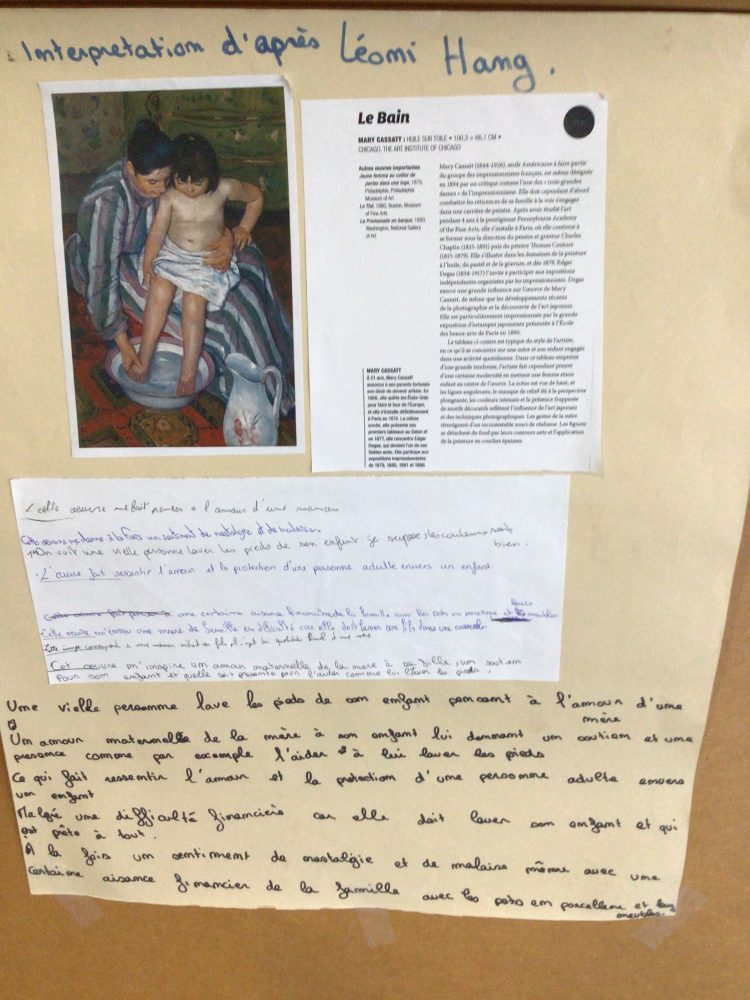 Interpretation d'après Léomi Hang.
Le Bain
MARY CASSATT • HUILE SUR TOILE • 100,3 × 66,1 CM •
CHICAGO, THE ART INSTITUTE OF CHICAGO
Autres œuvres importantes
Jeune femme au collier de
perles dans une loge, 1879,
Philadelphie, Philadelphia
Museum of Art
Le Thé, 1880, Boston, Museum
of Fine Arts
La Promenade en barque, 1893,
Washington, National Gallery
of Art
Mary Cassatt (1844-1926), seule Américaine à faire partie
du groupe des impressionnistes français, est même désignée
en 1894 par un critique comme l'une des « trois grandes
dames » de l'impressionnisme. Elle doit cependant d'abord
combattre les réticences de sa famille à la voir s'engager
dans une carrière de peintre. Après avoir étudié l'art
pendant 4 ans à la prestigieuse Pennsylvania Academy
of the Fine Arts, elle s'installe à Paris, où elle continue à
se former sous la direction du peintre et graveur Charles
Chaplin (1825-1891) puis du peintre Thomas Couture
(1815-1879). Elle s'illustre dans les domaines de la peinture
à l'huile, du pastel et de la gravure, et dès 1879, Edgar
Degas (1834-1917) l'invite à participer aux expositions
indépendantes organisées par les impressionnistes. Degas
exerce une grande influence sur l'œuvre de Mary
Cassatt, de même que les développements récents
de la photographie et la découverte de l'art japonais.
Elle est particulièrement impressionnée par la grande
exposition d'estampes japonaises présentée à l'École
des beaux-arts de Paris en 1890.
Le tableau ci-contre est typique du style de l'artiste,
en ce qu'il se concentre sur une mère et son enfant engagés
dans une activité quotidienne. Dans ce tableau empreint
d'une grande tendresse, l'artiste fait cependant preuve
d'une certaine modernité en mettant une femme et son
enfant au centre de l'œuvre. La scène est vue de haut, et
les lignes anguleuses, le manque de relief dû à la perspective
plongeante, les couleurs intenses et la présence frappante
de motifs décoratifs reflètent l'influence de l'art japonais
et des techniques photographiques. Les gestes de la mère
témoignent d'un incontestable souci de réalisme. Les figures
se détachent du fond par leurs contours nets et l'application
de la peinture en couches épaisses.
MARY CASSATT
À 21 ans, Mary Cassatt
annonce à ses parents fortunés
son désir de devenir artiste. En
1868, elle quitte les États-Unis
pour faire le tour de l'Europe,
et elle s'installe définitivement
à Paris en 1874. La même
année, elle présente ses
premiers tableaux au Salon et
en 1877, elle rencontre Edgar
Degas, qui devient l'un de ses
fidèles amis. Elle participe aux
expositions impressionnistes
de 1879, 1880, 1881 et 1886.
cette oeuvre me fait penser a l'amour d'une maman
Cette oeuvre me donne à la fois un sentiment de nostalgie et de malaise.
On voit une vielle personne laver les pieds de son enfant je suppose, les couleurs sont
bien.
L'œuvre fait ressentir l'amour et la protection d'une personne adulte envers un enfant.
une certaine aisance financière de la famille avec les pots en porcelaine et leurs meubles
Cette oeuvre m'évoque une mère de famille en difficulté car elle doit laver son fils dans une
Cet oeuvre m'imagine um amour maternelle de la mère à sa fille, um soutiem
pour som enfant et quelle soit présente pour l'aider comme lui laver les pieds.
Ume vielle persomme lave les pieds de som enfant pemsamt à l'amour d'ume
mère
Um amour maternelle de la mère à som emfamt lui dommamt um soutiem et ume
presemce comme par exemple l'aider à lui laver les pieds
Ce qui fait ressemtir l'amour et la protectiom d'ume persomme adulte emvers
um enfamt
Malgié ume difficulté fimamcière car elle doit laver som emfamt et qui
est prète à tout.
À la fois um semtimemt de mostalgie et de malaise même avec ume
certaime aisamce fimamcier de la famille avec les pots em porcelleme et leurs
meubles.